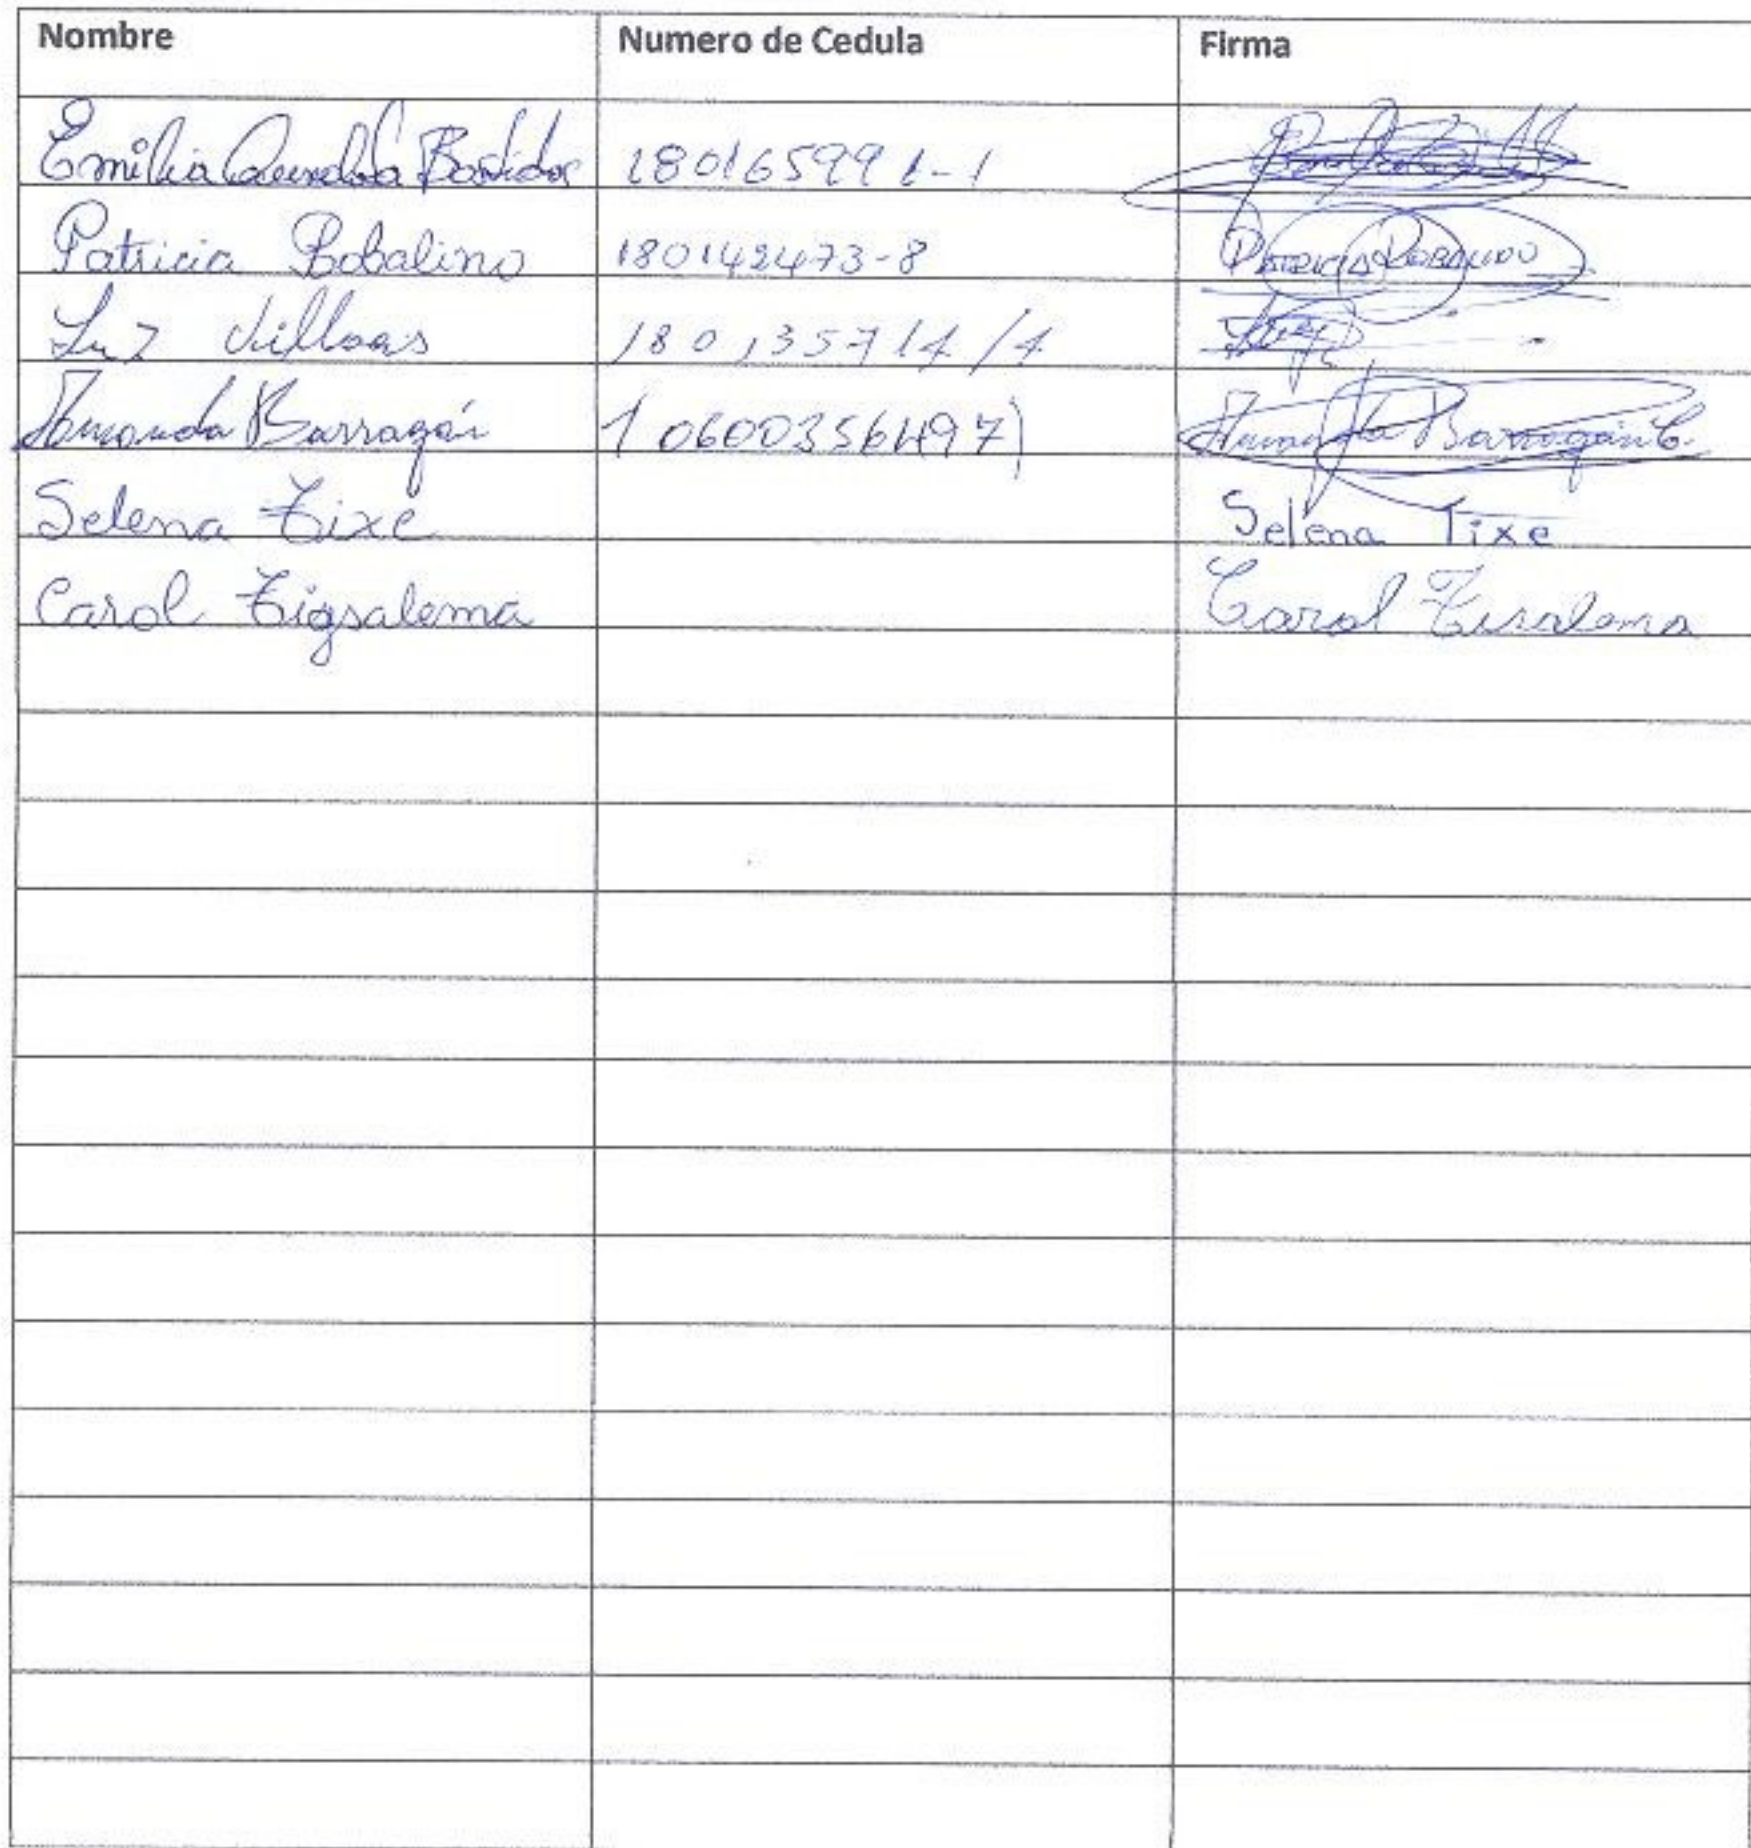 Nombre Numero de Cedula Firma
Emilia Bastidas 180165991-1
Patricia Robalino 180142473-8 Patricia Robalino
Luz Villoas 180135714/4
Amanda Barragán (0600356497) Amanda Barragán C.
Selena Tixe Selena Tixe
Carol Tigsalema Carol Tisalema